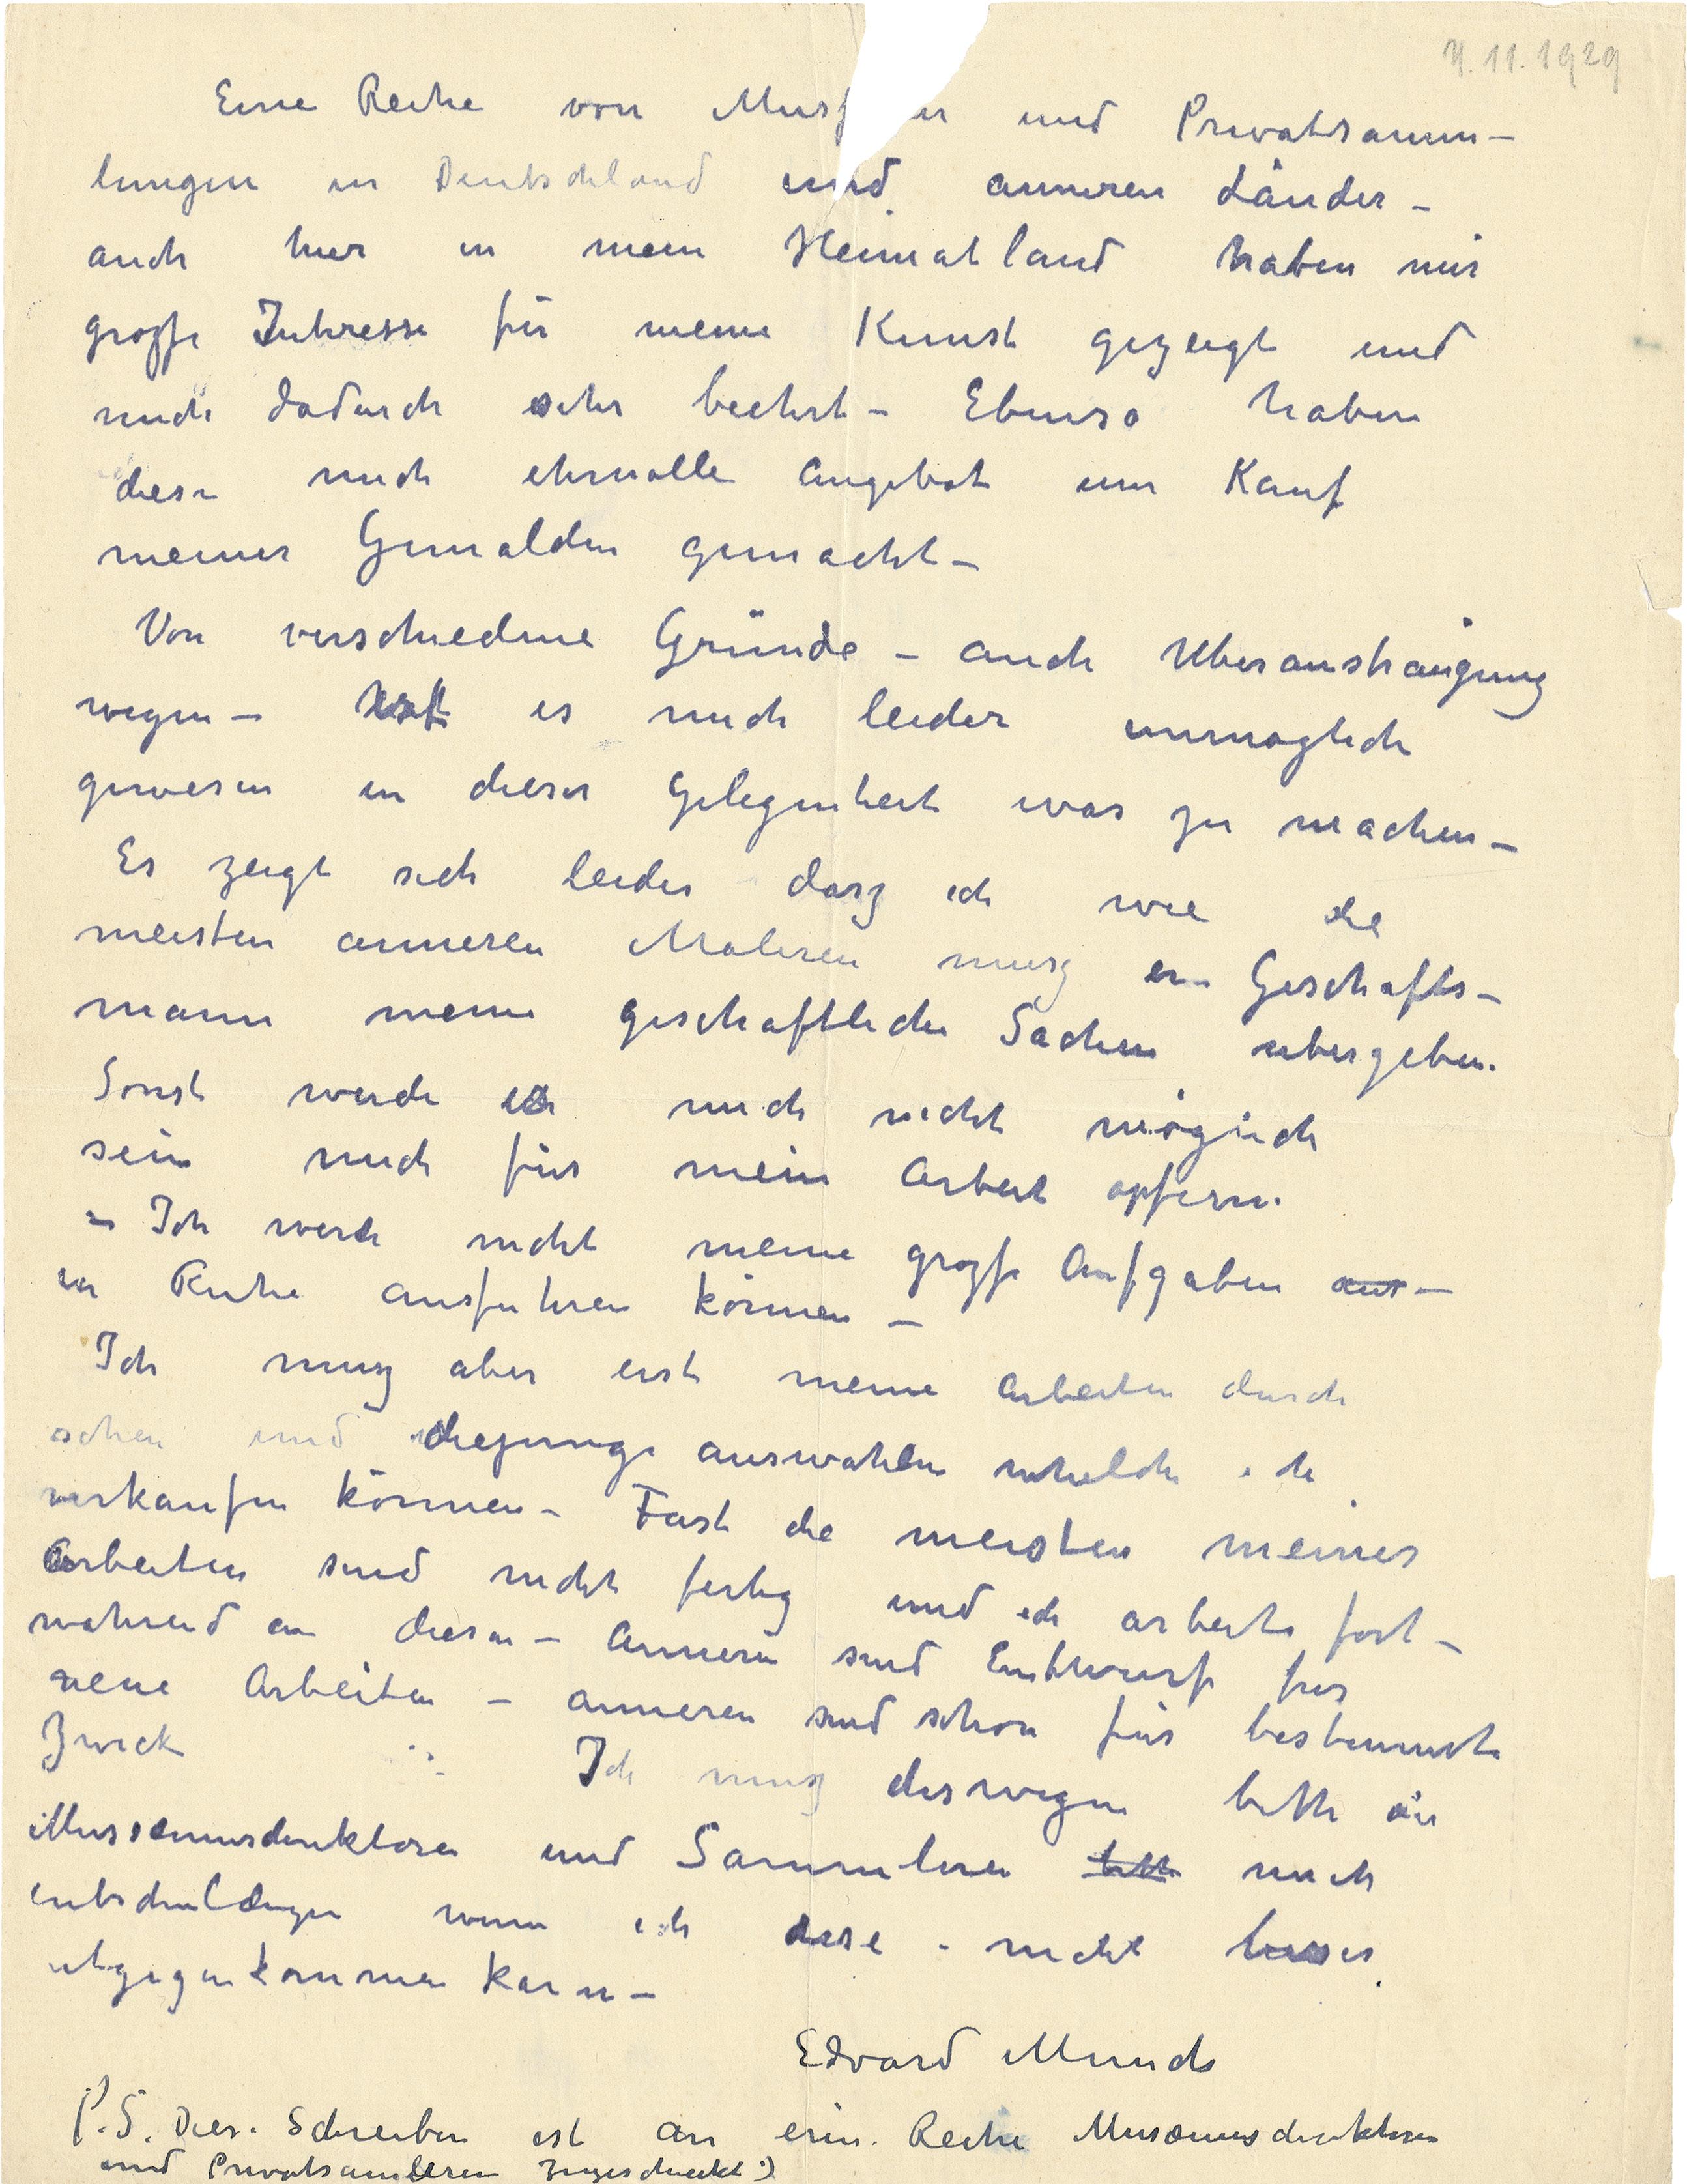 4.11.1929
Eine Reihe von Mus en und Privatsamm-
lungen in Deutschland und anneren Länder -
auch hier in mein Heimatland haben mir
grosse Interesse für meine Kunst gezeigt und
mich dadurch sehr beehrt - Ebenso haben
diese mich ehrvolle Angebot um Kauf
meiner Gemalden gemacht -
Von verschiedene Gründe - auch Uberansträngung
wegen - ist es mich leider unmoglich
gewesen in dieser Gelegenheit was zu machen -
Es zeigt sich leider dasz ich wie die
meisten anneren Maleren musz ein Geschafts-
mann meine geschaftliche Sachen ubergeben.
Sonst werde es mich nicht möglich
sein mich für mein Arbeit opfern.
- Ich werde nicht meine grosse Aufgaben aus-
in Ruhe ausfuhren können -
Ich musz aber erst meine Arbeiten durch
sehen und diejenige auswahlen whelche ich
verkaufen können - Fast die meisten meiner
Arbeiten sind nicht fertig und ich arbeite fort-
wahrend an diesen - Anneren sind Entwurfe fur
neue Arbeiten - anneren sind schon für bestemmte
Zweck Ich musz deswegen bitte die
Musæumsdirektoren und Sammleren bitte mich
entschuldigen wenn ich diese nicht besser
entgegenkommen kann -
Edvard Munch
P.S. Diese Schreiben ist an eine Reihe Musæumsdirektoren
und Privatsamleren zugeschickt)